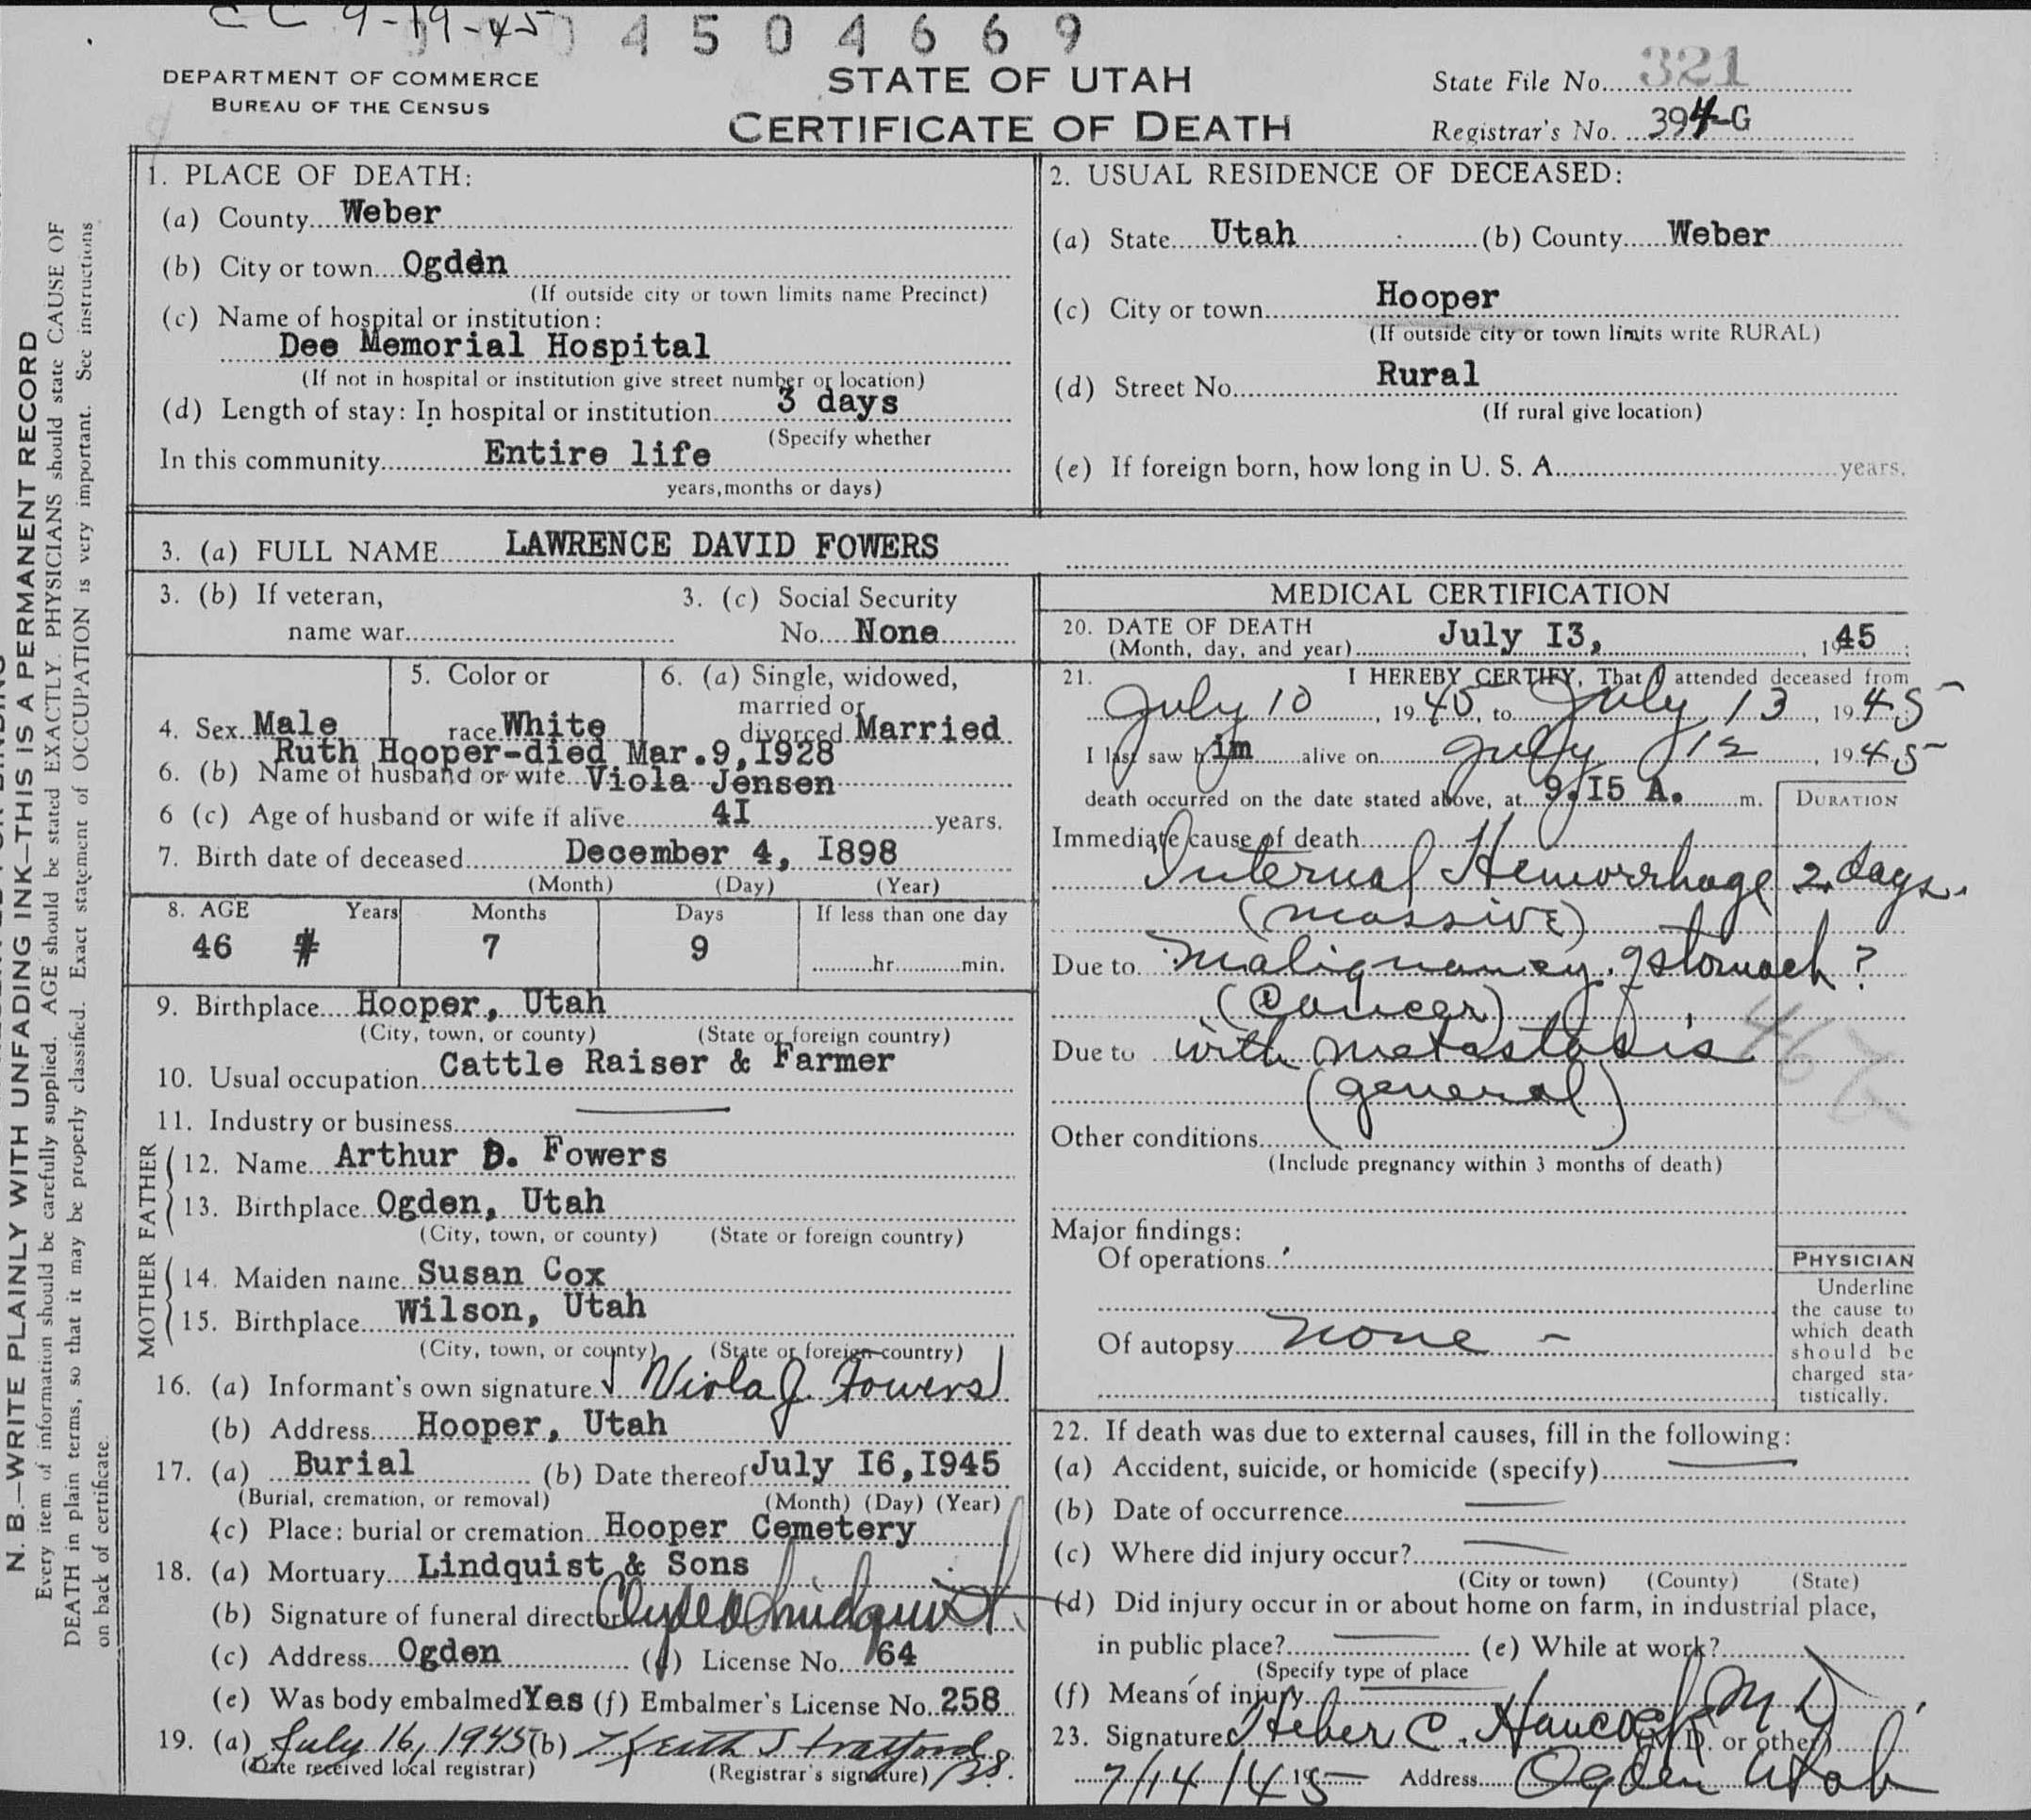 CC 9-19-45
4504669
DEPARTMENT OF COMMERCE
BUREAU OF THE CENSUS
STATE OF UTAH
CERTIFICATE OF DEATH
State File No. 321
Registrar's No. 394-G
N. B.—WRITE PLAINLY WITH UNFADING INK—THIS IS A PERMANENT RECORD
Every item of information should be carefully supplied. AGE should be stated EXACTLY. PHYSICIANS should state CAUSE OF
DEATH in plain terms, so that it may be properly classified. Exact statement of OCCUPATION is very important. See instructions
on back of certificate.
1. PLACE OF DEATH:
(a) County Weber
(b) City or town Ogden
(If outside city or town limits name Precinct)
(c) Name of hospital or institution:
Dee Memorial Hospital
(If not in hospital or institution give street number or location)
(d) Length of stay: In hospital or institution 3 days
(Specify whether
In this community Entire life
years, months or days)
2. USUAL RESIDENCE OF DECEASED:
(a) State Utah (b) County Weber
(c) City or town Hooper
(If outside city or town limits write RURAL)
(d) Street No. Rural
(If rural give location)
(e) If foreign born, how long in U. S. A. years.
3. (a) FULL NAME LAWRENCE DAVID FOWERS
3. (b) If veteran,
name war
3. (c) Social Security
No. None
4. Sex Male
5. Color or
race White
6. (a) Single, widowed,
married or
divorced Married
Ruth Hooper-died Mar.9,I928
6. (b) Name of husband or wife Viola Jensen
6 (c) Age of husband or wife if alive 4I years.
7. Birth date of deceased December 4, I898
(Month) (Day) (Year)
8. AGE Years Months Days If less than one day
46 7 9 hr. min.
9. Birthplace Hooper, Utah
(City, town, or county) (State or foreign country)
10. Usual occupation Cattle Raiser & Farmer
11. Industry or business
FATHER
12. Name Arthur D. Fowers
13. Birthplace Ogden, Utah
(City, town, or county) (State or foreign country)
MOTHER
14. Maiden name Susan Cox
15. Birthplace Wilson, Utah
(City, town, or county) (State or foreign country)
16. (a) Informant's own signature Viola J. Fowers
(b) Address Hooper, Utah
17. (a) Burial (b) Date thereof July I6,I945
(Burial, cremation, or removal) (Month) (Day) (Year)
(c) Place: burial or cremation Hooper Cemetery
18. (a) Mortuary Lindquist & Sons
(b) Signature of funeral director Clyde Lindquist
(c) Address Ogden (d) License No. 164
(e) Was body embalmed Yes (f) Embalmer's License No. 258
19. (a) July 16, 1945 (b) Keith Stratford
(Date received local registrar) (Registrar's signature)
MEDICAL CERTIFICATION
20. DATE OF DEATH
(Month, day, and year) July I3, 1945
21. I HEREBY CERTIFY, That I attended deceased from
July 10, 1945, to July 13, 1945
I last saw him alive on July 12, 1945
death occurred on the date stated above, at 9.I5 A. m.
DURATION
Immediate cause of death
Internal Hemorrhage 2 days.
(massive)
Due to malignancy of stomach ?
(Cancer)
Due to with metastasis
(general)
46
Other conditions
(Include pregnancy within 3 months of death)
Major findings:
Of operations
Of autopsy none -
PHYSICIAN
Underline
the cause to
which death
should be
charged sta-
tistically.
22. If death was due to external causes, fill in the following:
(a) Accident, suicide, or homicide (specify)
(b) Date of occurrence
(c) Where did injury occur?
(City or town) (County) (State)
(d) Did injury occur in or about home on farm, in industrial place,
in public place? (e) While at work?
(Specify type of place
(f) Means of injury
23. Signature Heber C. Hancock M D
(M.D. or other)
7/14/45 19 Address Ogden Utah